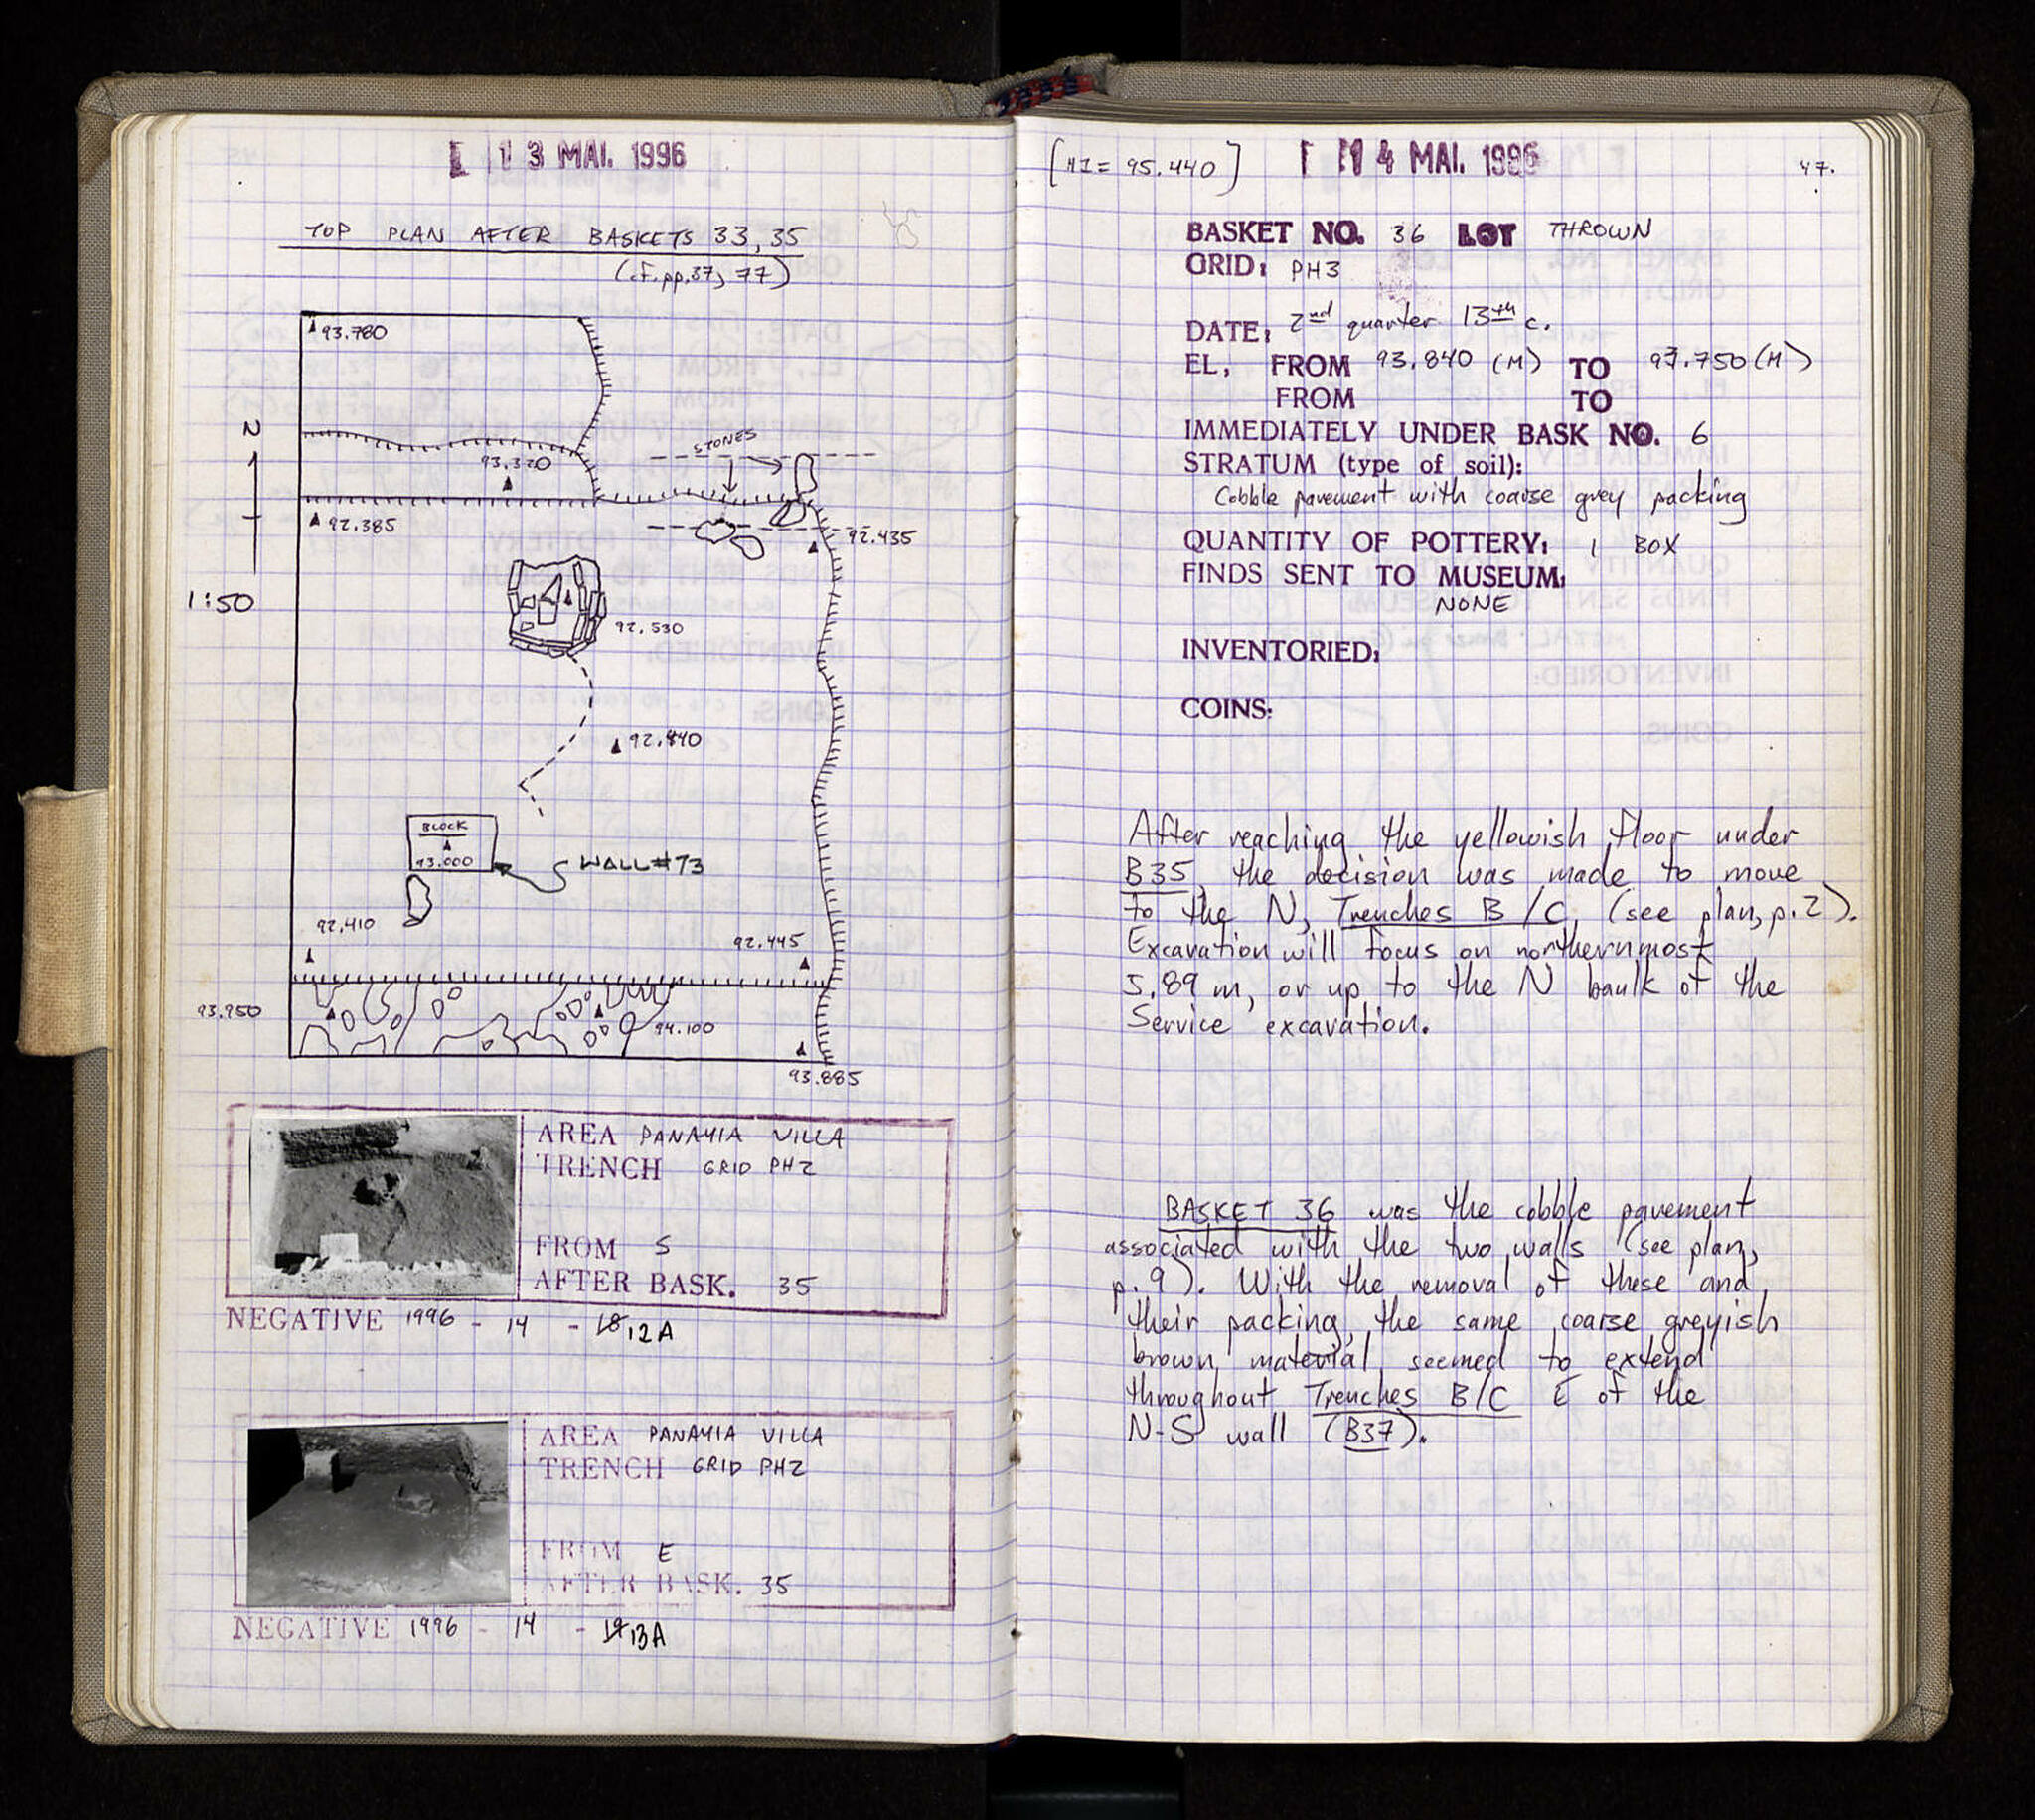 13 MAI. 1996
TOP PLAN AFTER BASKETS 33, 35
(cf. pp. 37, 77)
93.780
N
STONES
93.320
92.385
92.435
1:50
92.530
92.440
BLOCK
93.000
WALL #73
92.410
92.445
93.950
94.100
93.885
AREA PANAYIA VILLA
TRENCH GRID PH2
FROM S
AFTER BASK. 35
NEGATIVE 1996 - 14 - 12A
AREA PANAYIA VILLA
TRENCH GRID PH2
FROM E
AFTER BASK. 35
NEGATIVE 1996 - 14 - 13A
[HI = 95.440]
14 MAI. 1996
47.
BASKET NO. 36 LOT THROWN
GRID: PH3
DATE: 2nd quarter 13th c.
EL, FROM 93.840 (M) TO 93.750 (M)
FROM TO
IMMEDIATELY UNDER BASK NO. 6
STRATUM (type of soil):
Cobble pavement with coarse grey packing
QUANTITY OF POTTERY: 1 BOX
FINDS SENT TO MUSEUM:
NONE
INVENTORIED:
COINS:
After reaching the yellowish floor under
B35, the decision was made to move
to the N, Trenches B/C (see plan, p. 2).
Excavation will focus on northernmost
5.89 m, or up to the N baulk of the
Service excavation.
BASKET 36 was the cobble pavement
associated with the two walls (see plan,
p. 9). With the removal of these and
their packing, the same coarse greyish
brown material seemed to extend
throughout Trenches B/C E of the
N-S wall (B37).